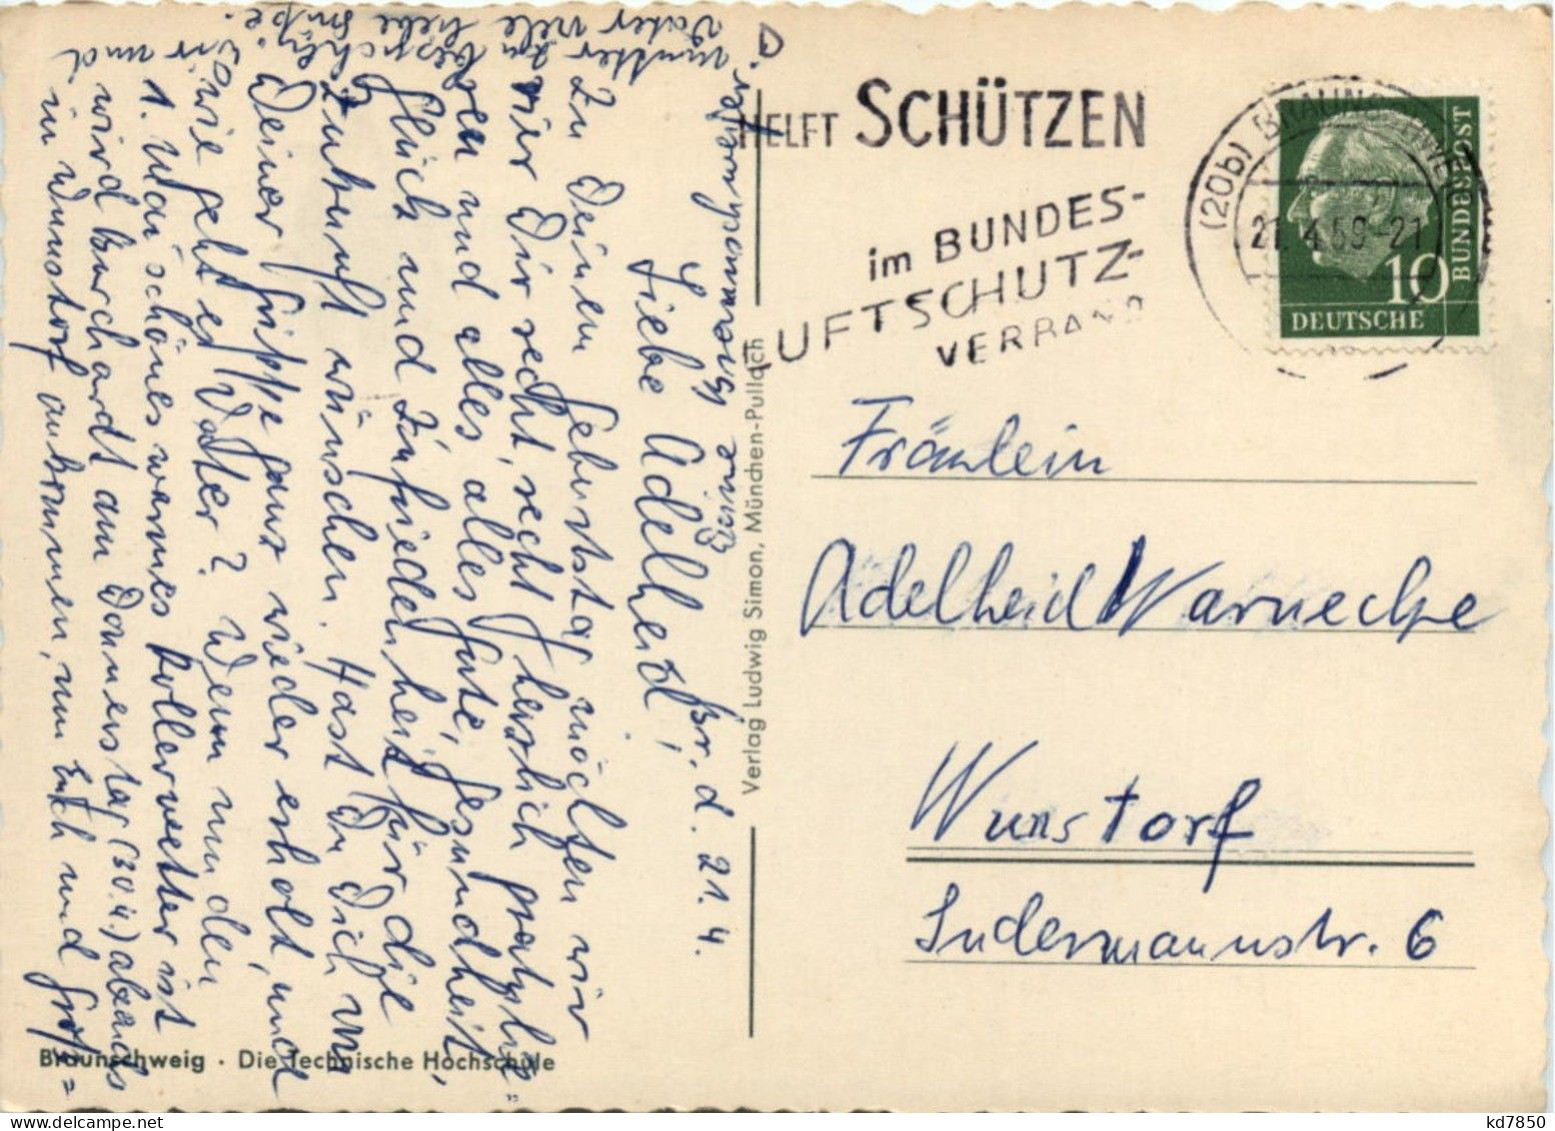 Br. d. 21. 4.
Liebe Adelheid!
Zu Deinem Geburtstag möchten wir
wir Dir recht, recht herzlich gratulie=
ren und alles, alles Gute, Gesundheit,
Glück und Zufriedenheit für die
Zukunft wünschen. Hast Du Dich von
Deiner Grippe ganz wieder erholt, und
wie geht es Vater? Wenn nun den
1. Mai schönes warmes Rollerwetter ist
wird Burchardt am Donnerstag (30.4.) abends
in Wunstorf ankommen, um Euch und Groß=
mutter zu
Vater viele liebe Grüße.
Eure
HELFT SCHÜTZEN
im BUNDES-
LUFTSCHUTZ-
VERBAND
(20b) BRAUNSCHWEIG
21. 4. 59-21
10
DEUTSCHE
BUNDESPOST
Fräulein
Adelheid Warnecke
Wunstorf
Sudermannstr. 6
Verlag Ludwig Simon, München-Pullach
Braunschweig · Die Technische Hochschule
kd7850